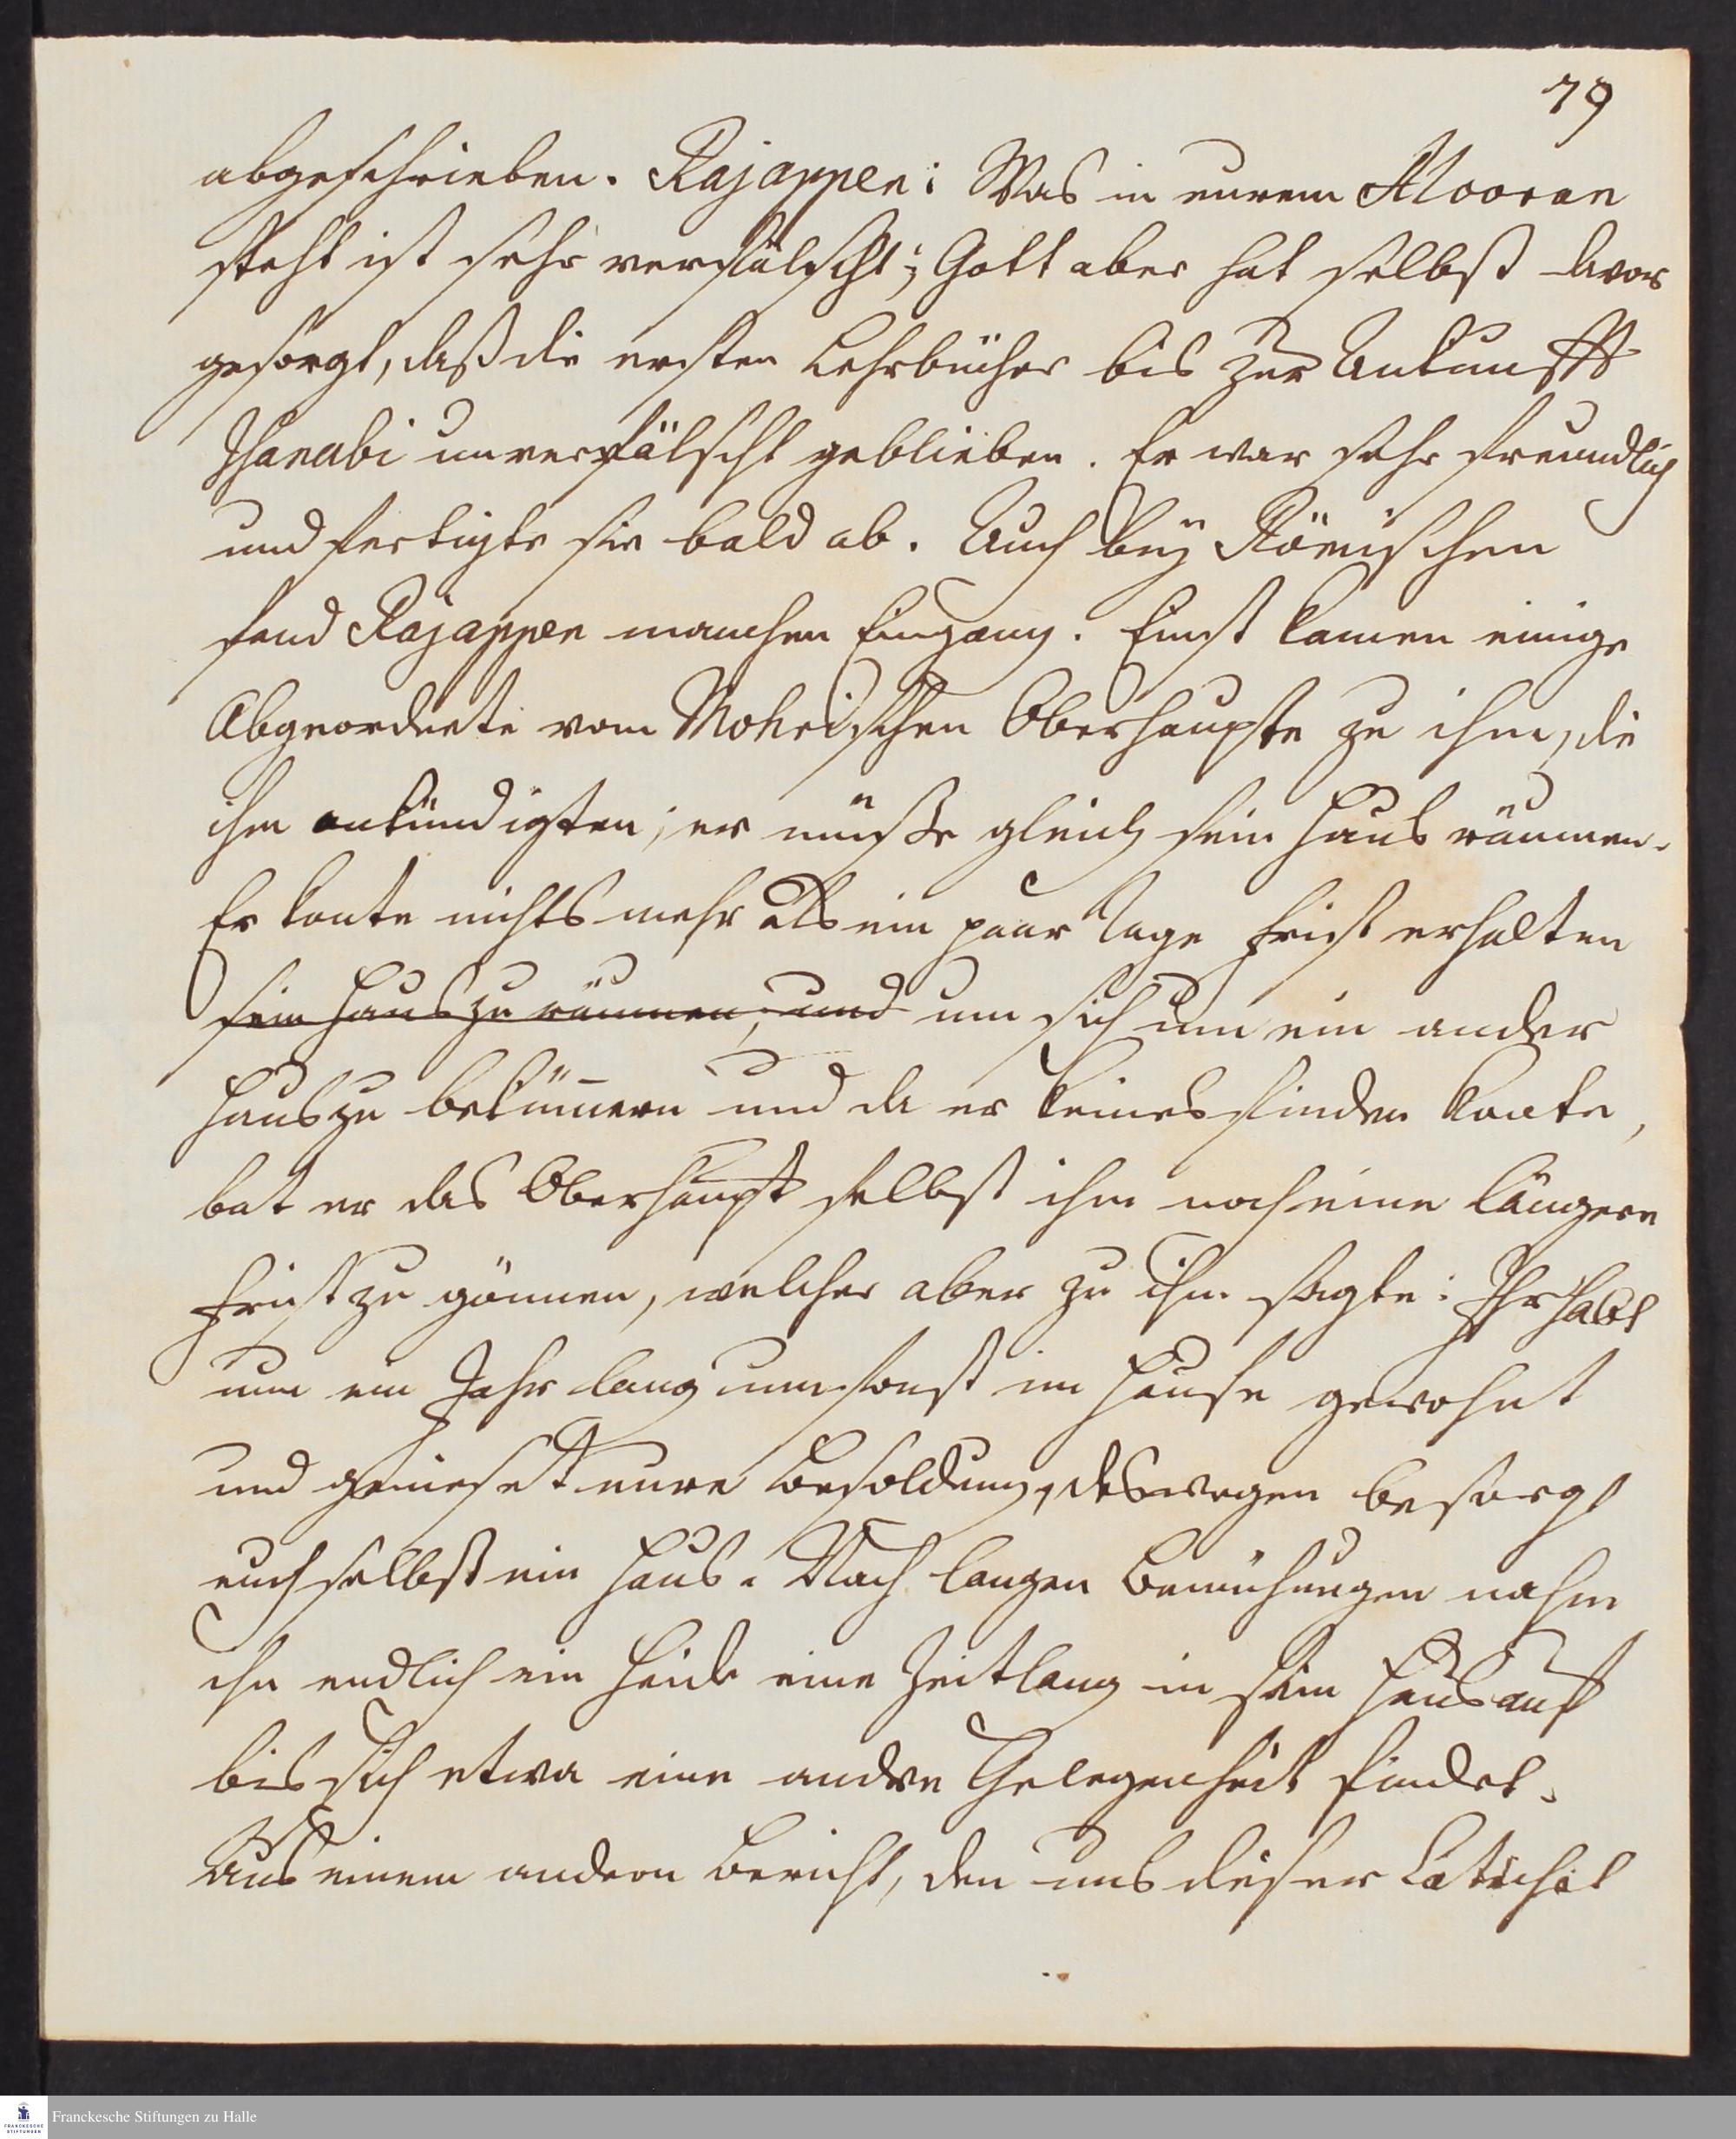 79
abgeschrieben. Rajappen: Was in eurem Alcoran
steht ist sehr verfälscht; Gott aber hat selbst davor
gesorgt, daß die ersten Lehrbücher bis zur Ankunfft
Isanabi unverfälscht geblieben. Er war sehr freundlich
und fertigte sie bald ab. Auch bey Römischen
fand Rajappen manchen Eingang. Einst kamen einige
Abgeordnete vom Mohrischen Oberhaupte zu ihm, die
ihm ankündigten; er müße gleich sein Haus räumen.
Er konte nichts mehr als ein paar Tage Frist erhalten
sein Haus zu räumen, und um sich um ein ander
Haus zu bekümern und da er keines finden konte,
bat er das Oberhaupt selbst ihm noch eine längere
Frist zu gönnen, welcher aber zu ihm sagte: Ihr habt
nun ein Jahr lang umsonst im Hause gewohnt
und genieset eure Besoldung, deswegen besorgt
euch selbst ein Haus. Nach langen Bemühungen nahm
ihn endlich ein Heide eine Zeitlang in sein Haus auf
bis sich etwa eine andre Gelegenheit findet.
Aus einem andern Bericht, den uns dieser Catechet
FRANCKESCHE STIFTUNGEN
Franckesche Stiftungen zu Halle